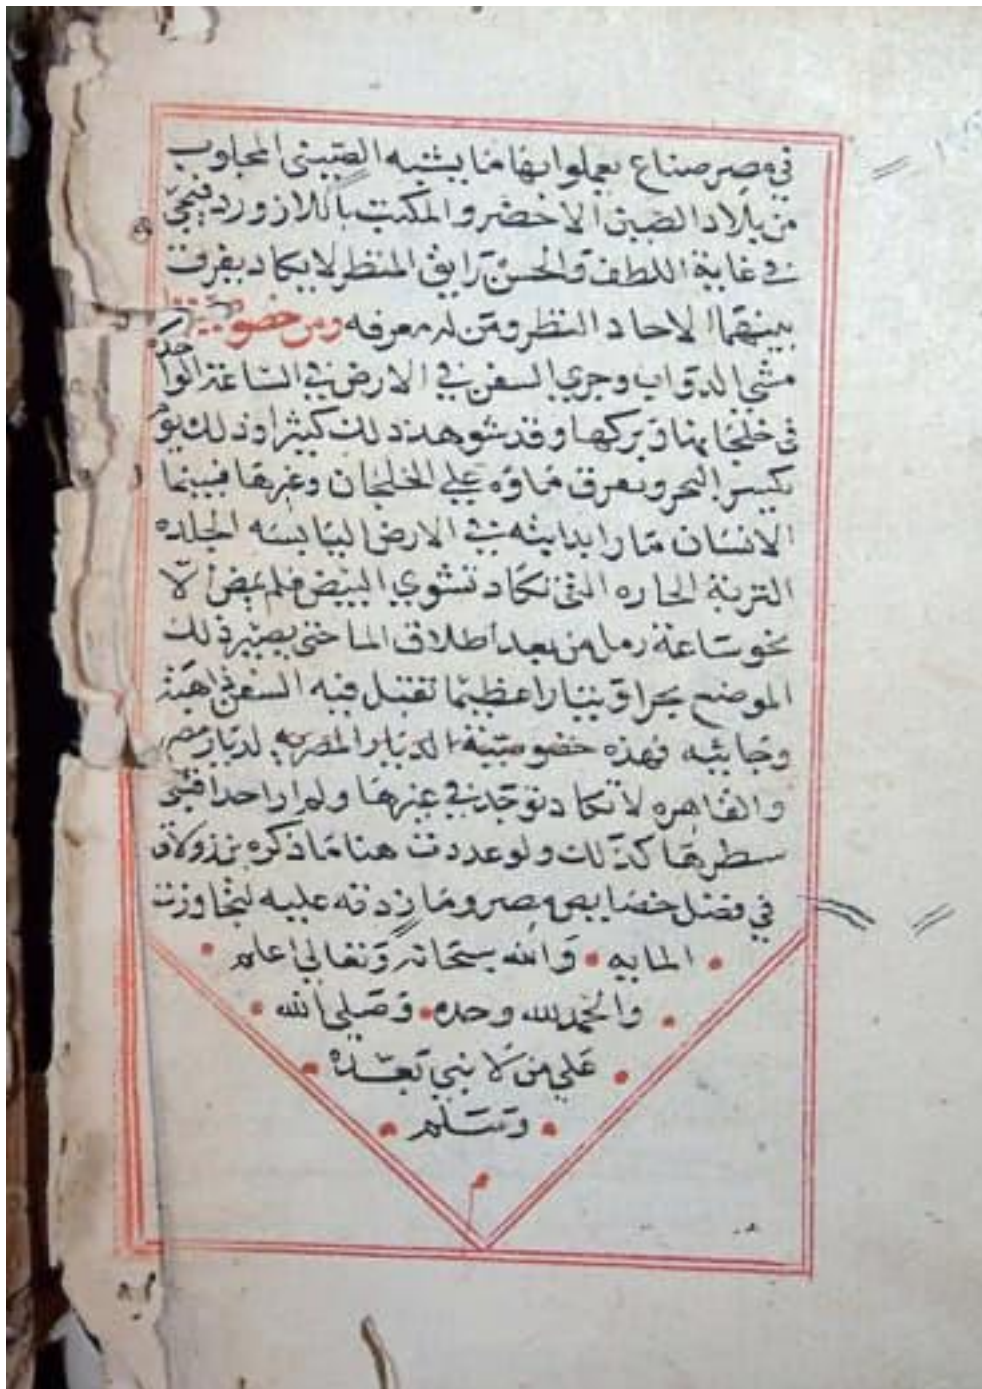 في مصر صناع يعملوا بها ما يشبه الصيني المجلوب
من بلاد الصين الاخضر والمكتب باللازورد فيجي
في غاية اللطف والحسن رايق المنظر لا يكاد يفرق
بينهما الاحاد النظر ومن له معرفه ومن خصوصيتها
مشي الدواب وجري السفن في الارض في الساعة الواحده
في خلجانها وبركها وقد شوهد ذلك كثيرا وذلك يوم
كسر البحر وتفرق ماؤه علي الخلجان وغيرها فبينما
الانسان مارا بدابته في الارض اليابسه الجلده
التربة الحاره التي تكاد تشوي البيض فلم يمض لا
نحو ساعة رمل من بعد اطلاق الما حتى يصير ذلك
الموضع بحرا وتيارا عظيما تقبل فيه السفن ذاهبة
وجائيه فهذه خصوصية الديار المصريه لديار مصر
والقاهره لا تكاد توجد في غيرها ولم ار احدا
سطرها كذلك ولو عددت هنا ما ذكره بن زولاق
في فضل خصايص مصر وما زدته عليه لتجاوزت
المايه والله سبحانه وتعالي اعلم
والحمد لله وحده وصلي الله
علي من لا نبي بعده
وسلم
م